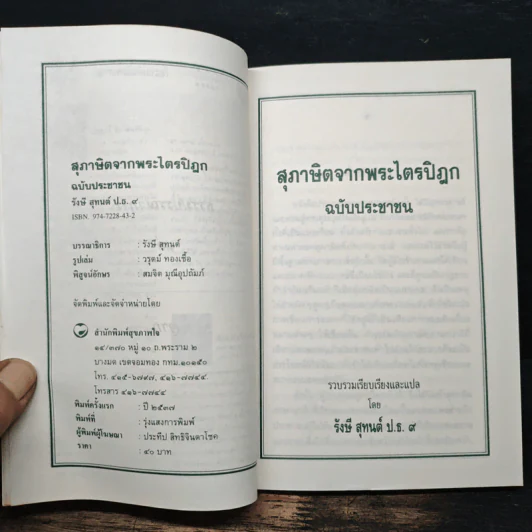 สุภาษิตจากพระไตรปิฎก
ฉบับประชาชน
รังษี สุทนต์ ป.ธ. ๙
ISBN. 974-7228-43-2
บรรณาธิการ : รังษี สุทนต์
รูปเล่ม : วรุตม์ ทองเชื้อ
พิสูจน์อักษร : สมจิต มุณีอุปถัมภ์
จัดพิมพ์และจัดจำหน่ายโดย
สำนักพิมพ์สุขภาพใจ
๑๔/๓๗๐ หมู่ ๑๐ ถ.พระราม ๒
บางมด เขตจอมทอง กทม.๑๐๑๕๐
โทร. ๔๑๕-๖๗๙๗, ๔๑๖-๗๗๔๔
โทรสาร ๔๑๖-๗๗๔๔
พิมพ์ครั้งแรก : ปี ๒๕๓๗
พิมพ์ที่ : รุ่งแสงการพิมพ์
ผู้พิมพ์ผู้โฆษณา : ประทีป สิทธิจินดาโชค
ราคา : ๔๐ บาท
สุภาษิตจากพระไตรปิฎก
ฉบับประชาชน
รวบรวมเรียบเรียงและแปล
โดย
รังษี สุทนต์ ป.ธ. ๙